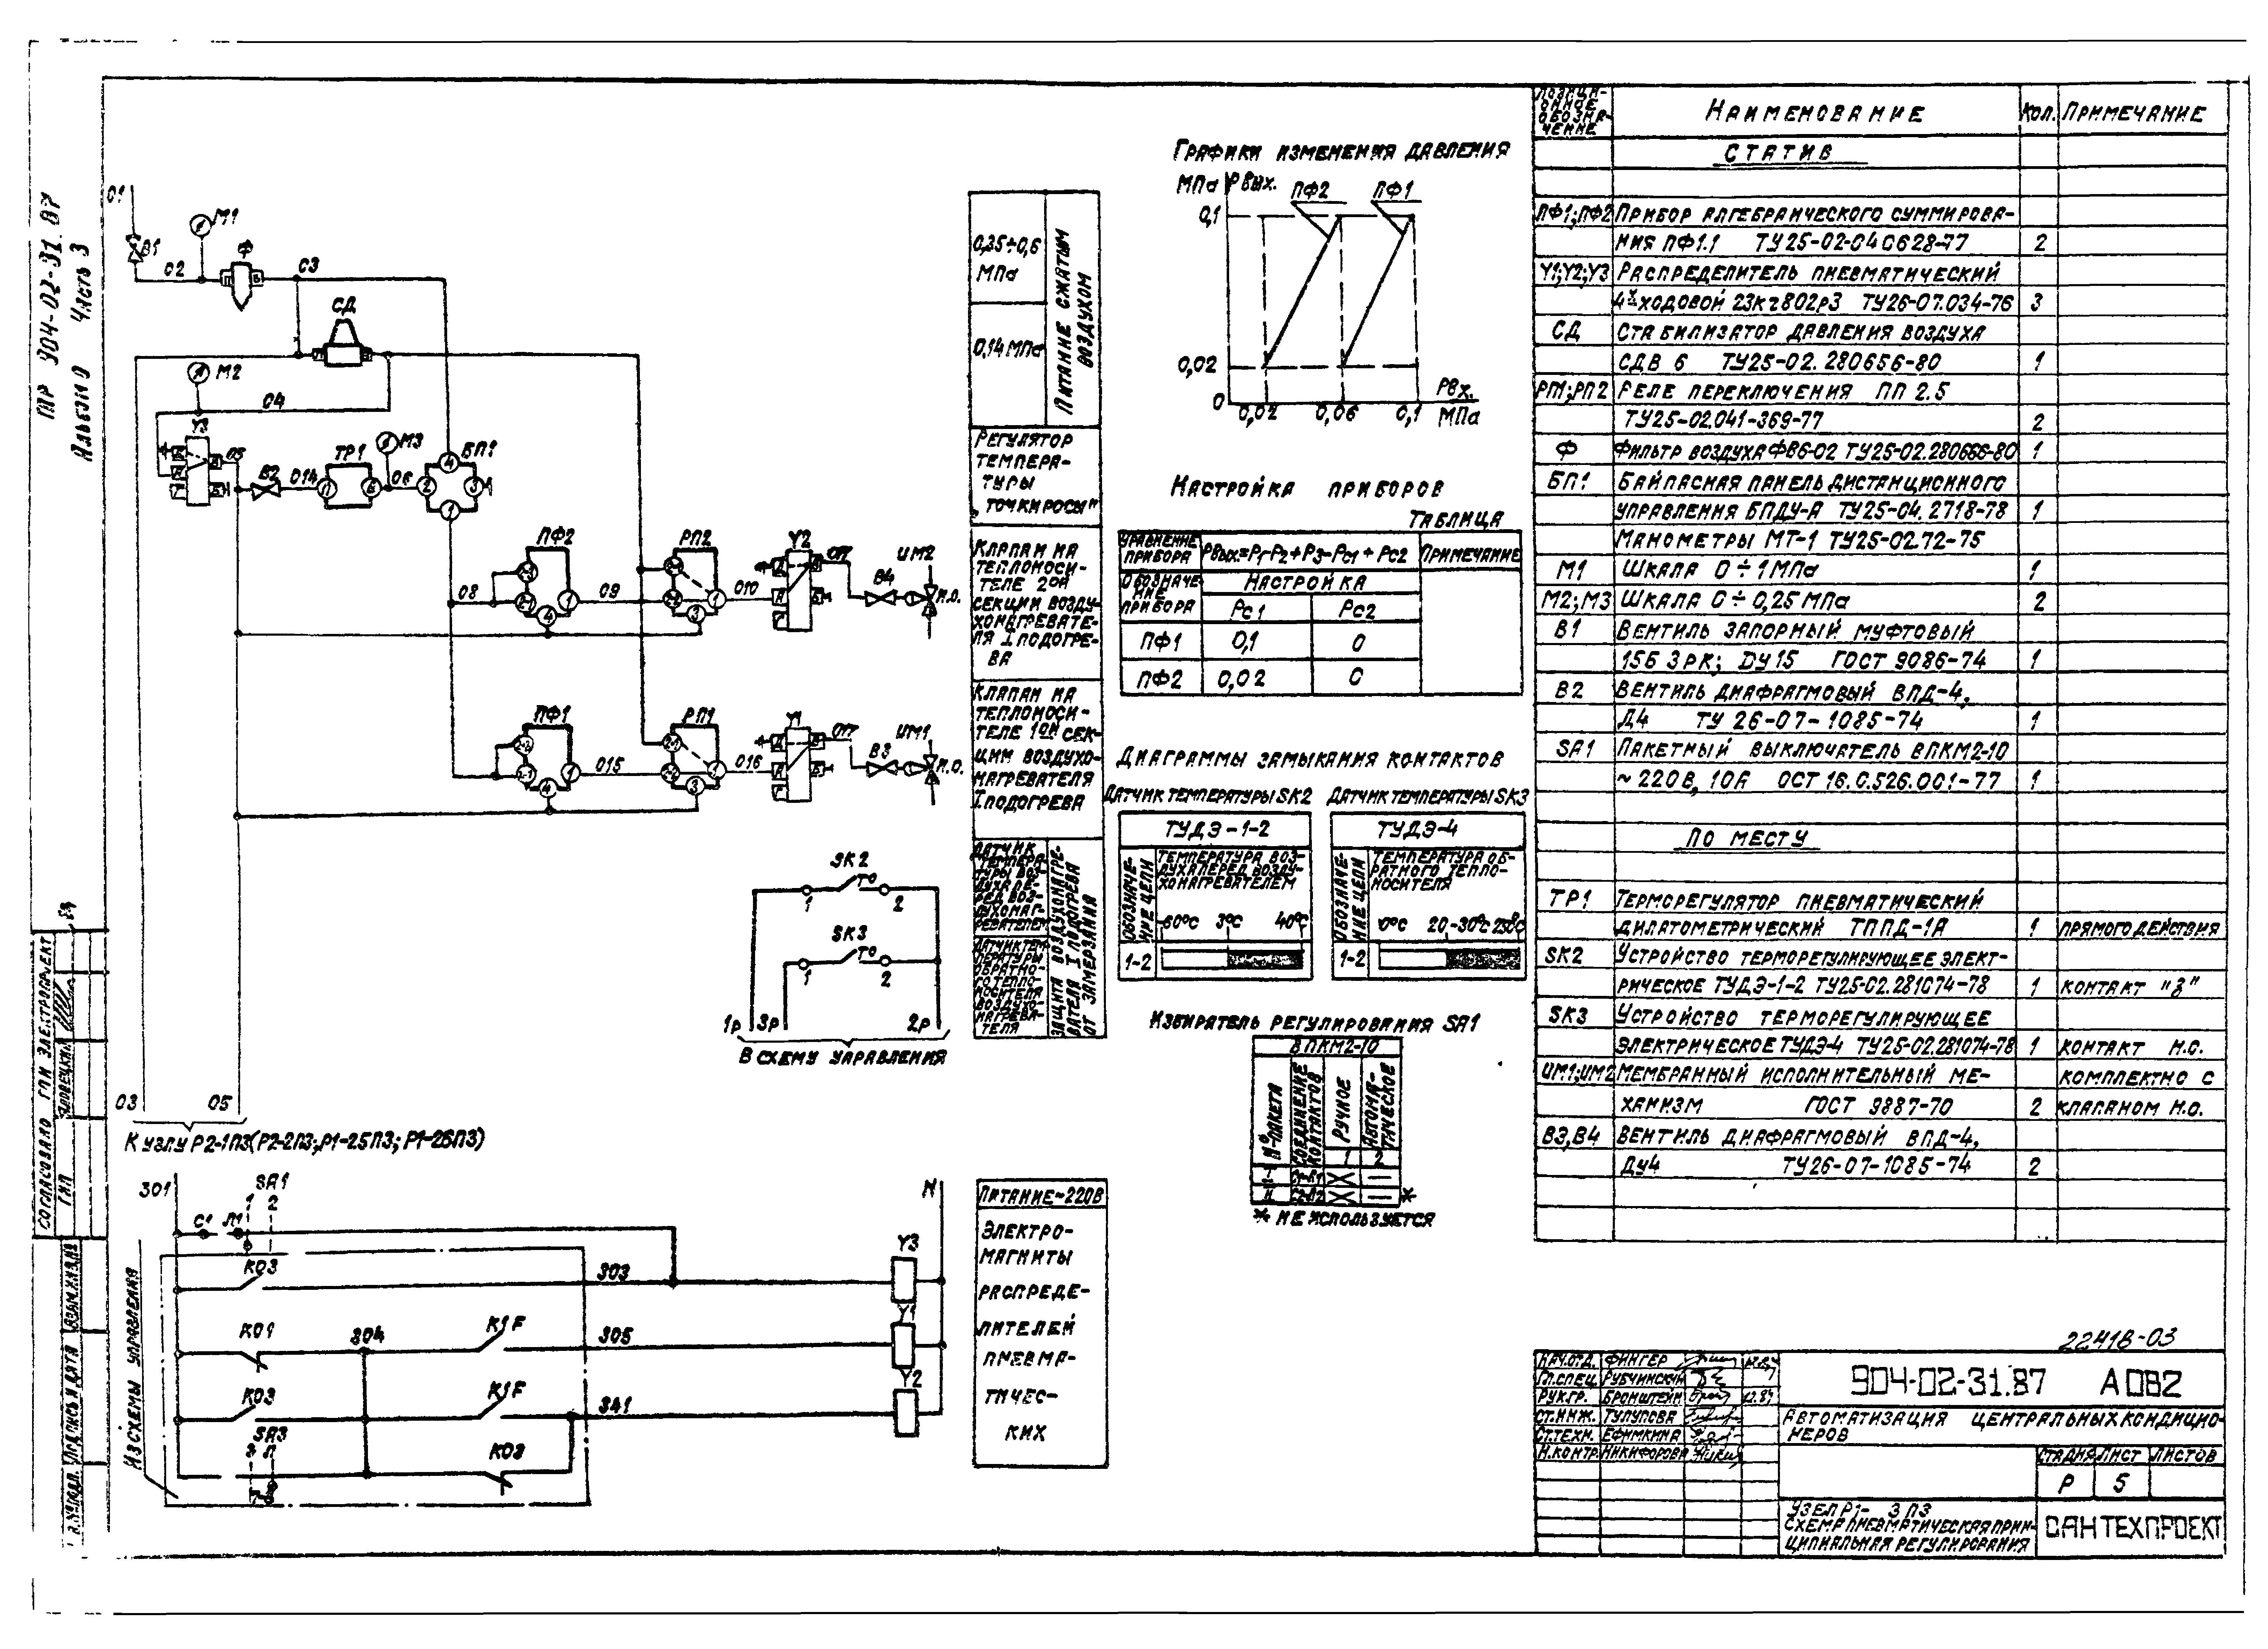 ТПР 904-02-31.87
Альбом 0 Часть 3
01
В1
М1
Ф
02
03
СД
М2
04
Y3
05
В2
014
ТР1
М3
06
БП1
П
В
4
2
3
1
ПФ2
РП2
Y2
017
ИМ2
08
09
010
В4
Н.О.
ПФ1
РП1
Y1
017
ИМ1
015
016
В3
Н.О.
SK2
t°
1
2
SK3
t°
1
2
1Р 3Р
2Р
В схему управления
03
05
К узлу Р2-1ПЗ(Р2-2ПЗ; Р1-25ПЗ; Р1-26ПЗ)
0,35÷0,6
МПа
0,14 МПа
Питание сжатым
воздухом
Регулятор
темпера-
туры
„точки росы"
Клапан на
теплоноси-
теле 2ой
секции возду-
хонагревате-
ля I подогре-
ва
Клапан на
теплоноси-
теле 1ой сек-
ции воздухо-
нагревателя
I подогрева
Датчик
темпера-
туры воз-
духа пе-
ред воз-
духонаг-
ревателем
Датчик тем-
пературы
обратно-
го тепло-
носителя
воздухо-
нагрева-
теля
Защита воздухонагре-
вателя I подогрева
от замерзания
301
SA1
1
2
N
С1
Л1
К03
303
Y3
К01
304
K1F
305
Y1
К03
K1F
341
Y2
SA3
З
Л
К02
Из схемы управления
Питание~220В
Электро-
магниты
распреде-
лителей
пневма-
тичес-
ких
Графики изменения давления
МПа Рвых.
ПФ2
ПФ1
0,1
0,02
0
0,02
0,06
0,1
Рвх.
МПа
Настройка приборов
Таблица
Уравнение
прибора
Рвых=Р1-Р2+Р3-Рс1+Рс2
Примечание
Обозначе-
ние
прибора
Настройка
Рс1
Рс2
ПФ1
0,1
0
ПФ2
0,02
0
Диаграммы замыкания контактов
Датчик температуры SK2
Датчик температуры SK3
ТУДЭ-1-2
ТУДЭ-4
Обозначе-
ние цепи
Температура воз-
духа перед возду-
хонагревателем
-60°С 3°С 40°С
1-2
Обозначе-
ние цепи
Температура об-
ратного тепло-
носителя
0°С 20-30°С 250°С
1-2
Избиратель регулирования SA1
ВПКМ2-10
№ пакета
Соединение
контактов
Ручное
Автома-
тическое
1
2
I
С1-Л1
II
С2-Л2
*
* Не используется
Позици-
онное
обозна-
чение
Наименование
Кол.
Примечание
Статив
ПФ1;ПФ2
Прибор алгебраического суммирова-
ния ПФ1.1 ТУ25-02-040628-77
2
Y1;Y2;Y3
Распределитель пневматический
4х ходовой 23кч802р3 ТУ26-07.034-76
3
СД
Стабилизатор давления воздуха
СДВ 6 ТУ25-02.280656-80
1
РП1;РП2
Реле переключения ПП 2.5
ТУ25-02.041-369-77
2
Ф
Фильтр воздуха ФВ6-02 ТУ25-02.280666-80
1
БП1
Байпасная панель дистанционного
управления БПДУ-А ТУ25-04.2718-78
1
Манометры МТ-1 ТУ25-02.72-75
М1
Шкала 0÷1 МПа
1
М2;М3
Шкала 0÷0,25 МПа
2
В1
Вентиль запорный муфтовый
15Б 3рк; Ду15 ГОСТ 9086-74
1
В2
Вентиль диафрагмовый ВПД-4,
Д4 ТУ 26-07-1085-74
1
SA1
Пакетный выключатель ВПКМ2-10
~220В, 10А ОСТ 16.0.526.001-77
1
По месту
ТР1
Терморегулятор пневматический
дилатометрический ТППД-1А
1
прямого действия
SK2
Устройство терморегулирующее элект-
рическое ТУДЭ-1-2 ТУ25-02.281074-78
1
контакт "З"
SK3
Устройство терморегулирующее
электрическое ТУДЭ-4 ТУ25-02.281074-78
1
контакт н.о.
ИМ1;ИМ2
Мембранный исполнительный ме-
комплектно с
ханизм ГОСТ 9887-70
2
клапаном н.о.
В3,В4
Вентиль диафрагмовый ВПД-4,
Ду4 ТУ26-07-1085-74
2
22418-03
Нач.отд. Фингер
Гл.спец. Рубчинский
Рук.гр. Бронштейн
12.87
Ст.инж. Тулупова
Ст.техн. Ефимкина
Н.контр. Никифорова
904-02-31.87 АОВ2
Автоматизация центральных кондицио-
неров
Стадия Лист Листов
Р 5
Узел Р1- 3 ПЗ
Схема пневматическая прин-
ципиальная регулирования
САНТЕХПРОЕКТ
Согласовано ГПИ Электропроект
ГИП
Взам.инв.№
Подпись и дата
Инв.№подл.